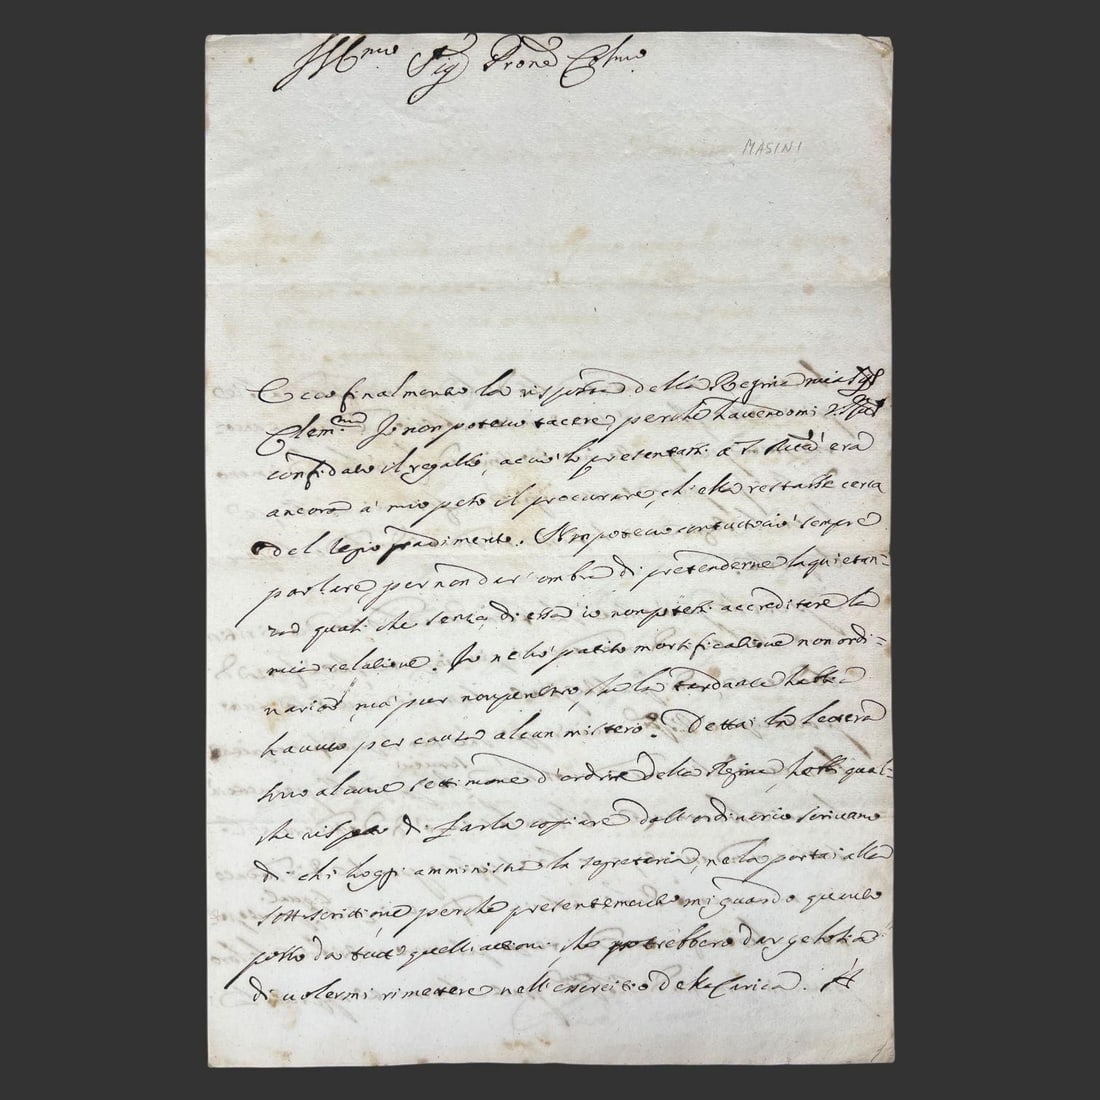 Ill.mo Sig.r Prone Col.mo
MASINI
Ecco finalmente la risposta della Regina mia Sig.ra
Clem.ma Io non potevo tacere, perche havendomi V.S. Ill.ma
confidato il regallo, acciò li presentassi a S. Maestà era
ancora à mio peso il procurare, ch'ella restasse certa
del regio gradimento. Non potevo contuttociò sempre
parlare, per non dar ombra di pretenderne la quietan=
za quasi che senza di essa io non potessi accreditare la
mia relatione. Io ne hò patito mortificatione non ordi=
naria, mà pur non penetro, che la tardanza habbia
havuto per causa alcun mistero. Dettai la lettera
sono alcune settimane d'ordine della Regina, hebbi qual=
che risp.to di farla copiare dall'ordinario scrivano
di chi hoggi amministra la segretaria, ne la portai alla
sottoscrittione perche presentemente mi guardo quanto
posso da tutte quelle attioni, che potrebbero dar gelosia
di volermi rimettere nell'essercitio della Carica.